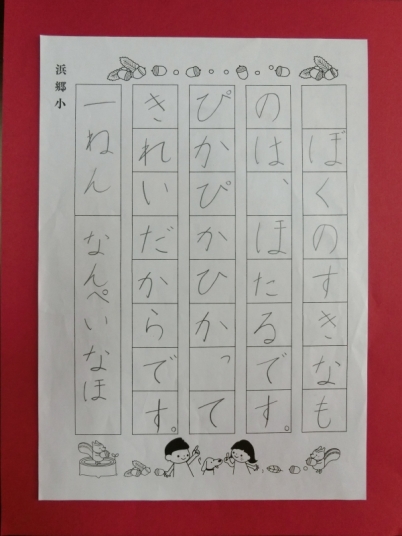 ぼくのすきなも
のは、ほたるです。
ぴかぴかひかって
きれいだからです。
一ねん なんぺいなほ
浜郷小